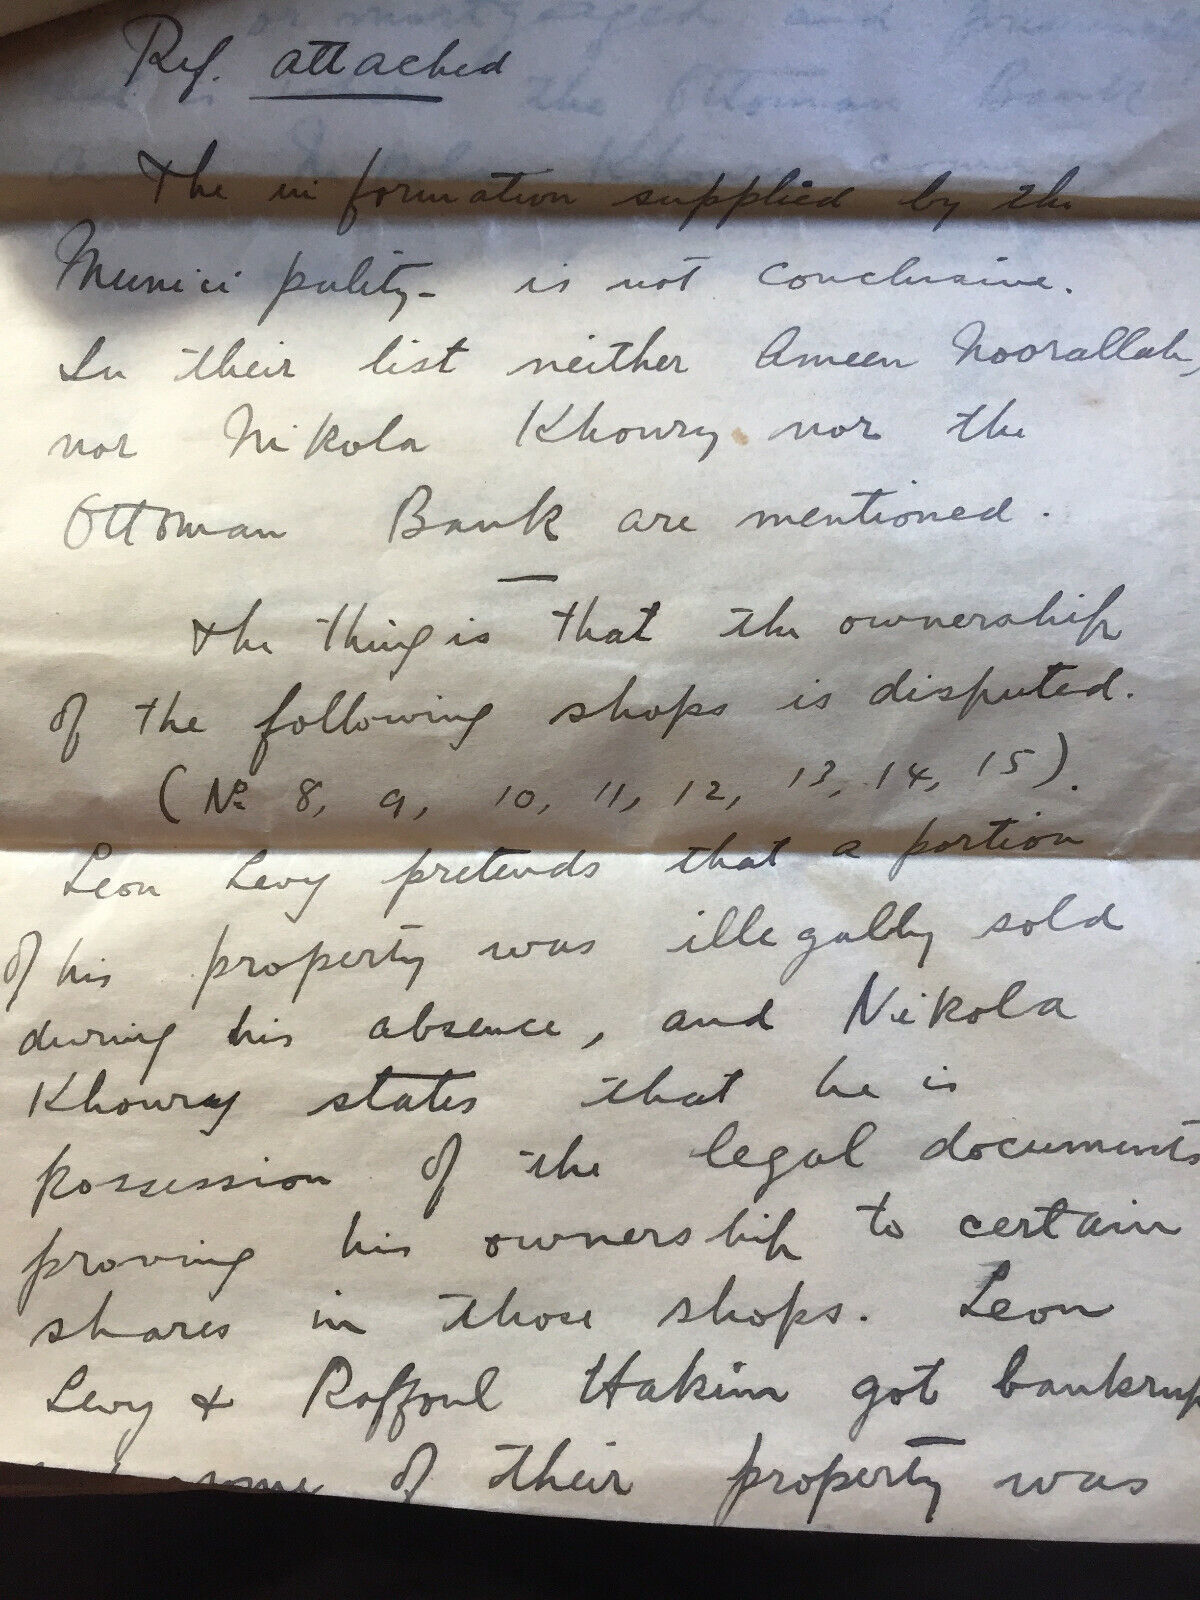 Ref. attached
The information supplied by the
Municipality - is not conclusive.
In their list neither Ameen Noorallah,
nor Nikola Khoury nor the
Ottoman Bank are mentioned.
The thing is that the ownership
of the following shops is disputed.
(No 8, 9, 10, 11, 12, 13, 14, 15).
Leon Levy pretends that a portion
of his property was illegally sold
during his absence, and Nikola
Khoury states that he is
possession of the legal documents
proving his ownership to certain
shares in those shops. Leon
Levy & Raffoul Hakim got bankrup
some of their property was